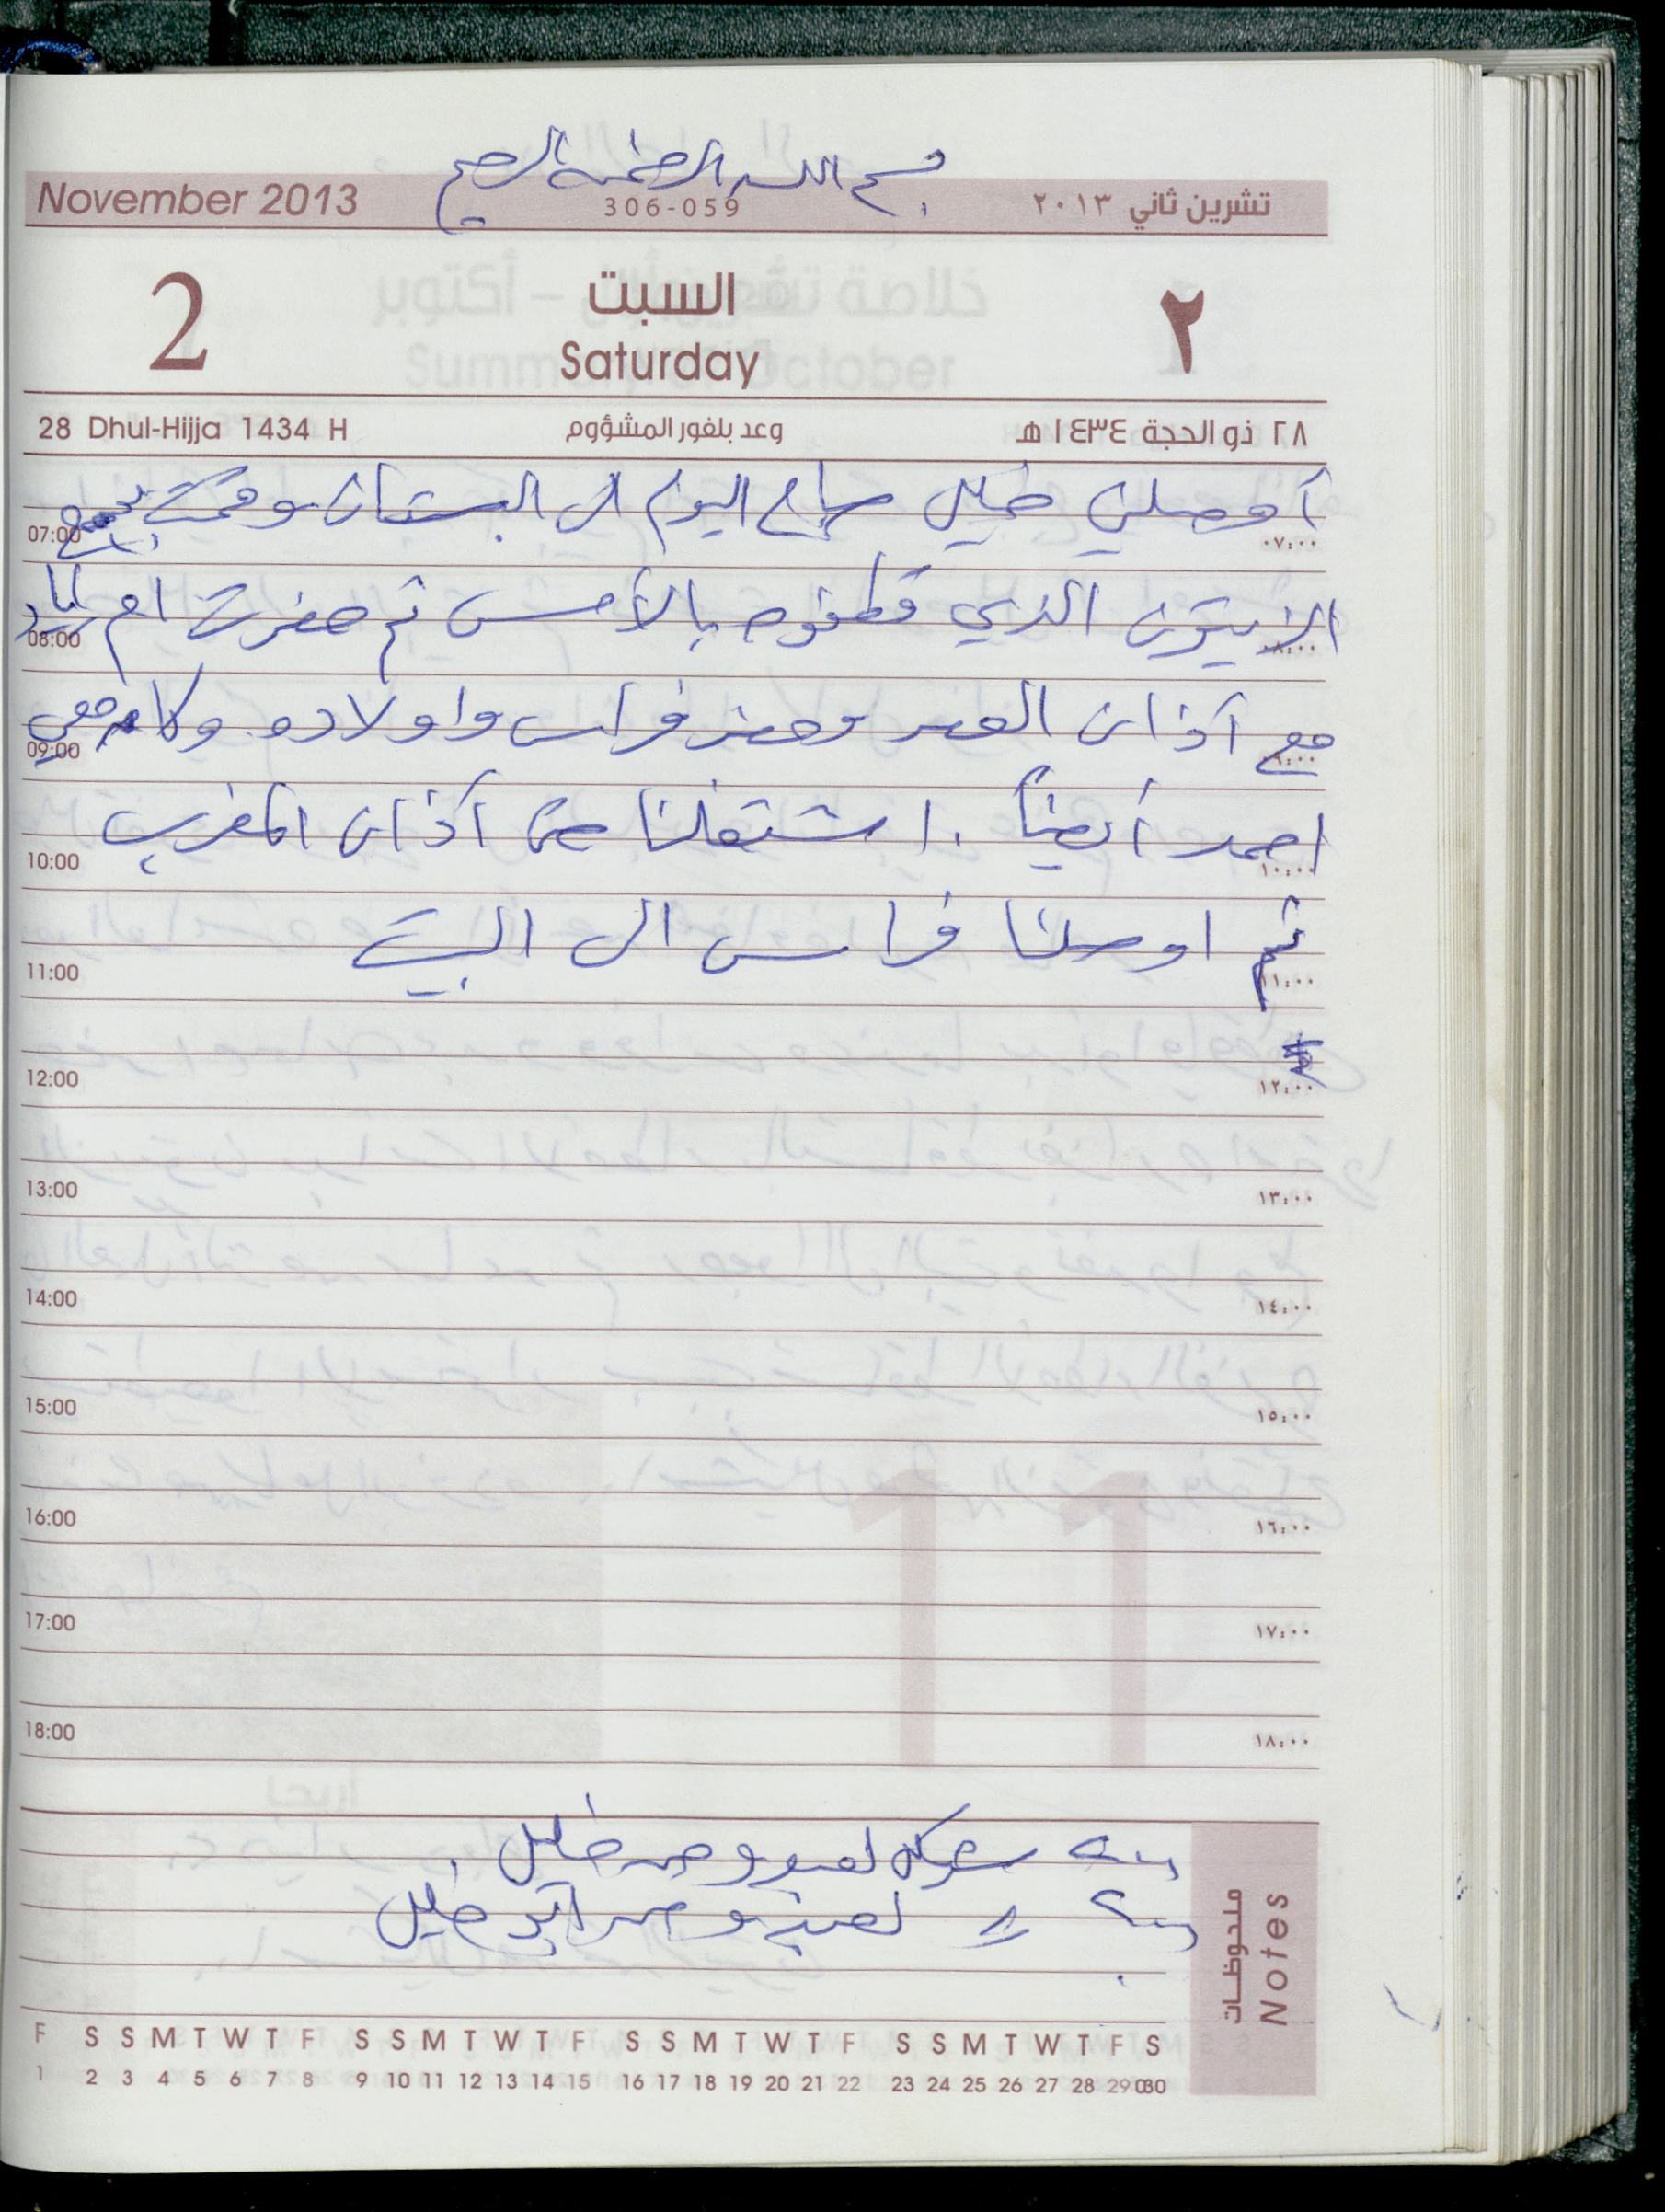 بسم الله الرحمن الرحيم
November 2013 306-059 تشرين ثاني ٢٠١٣
2 السبت ٢
Saturday
28 Dhul-Hijja 1434 H وعد بلفور المشؤوم ٢٨ ذو الحجة ١٤٣٤ هـ
أوصلني خليل صباح اليوم الى البستان وقمت بجمع
07:00 ٠٧:٠٠
الزيتون الذي قطفوه بالأمس ثم حضرت ام اياد
08:00 ٠٨:٠٠
مع آذان العصر وحضر فراس واولاده وكان معي
09:00 ٠٩:٠٠
احمد أيضاً . اشتغلنا حتى آذان المغرب
10:00 ١٠:٠٠
ثم اوصلنا فراس الى البيت
11:00 ١١:٠٠
12:00 ١٢:٠٠
13:00 ١٣:٠٠
14:00 ١٤:٠٠
15:00 ١٥:٠٠
16:00 ١٦:٠٠
17:00 ١٧:٠٠
18:00 ١٨:٠٠
خليل .
خليل
ملحوظات
Notes
F S S M T W T F S S M T W T F S S M T W T F S S M T W T F S
1 2 3 4 5 6 7 8 9 10 11 12 13 14 15 16 17 18 19 20 21 22 23 24 25 26 27 28 29 30